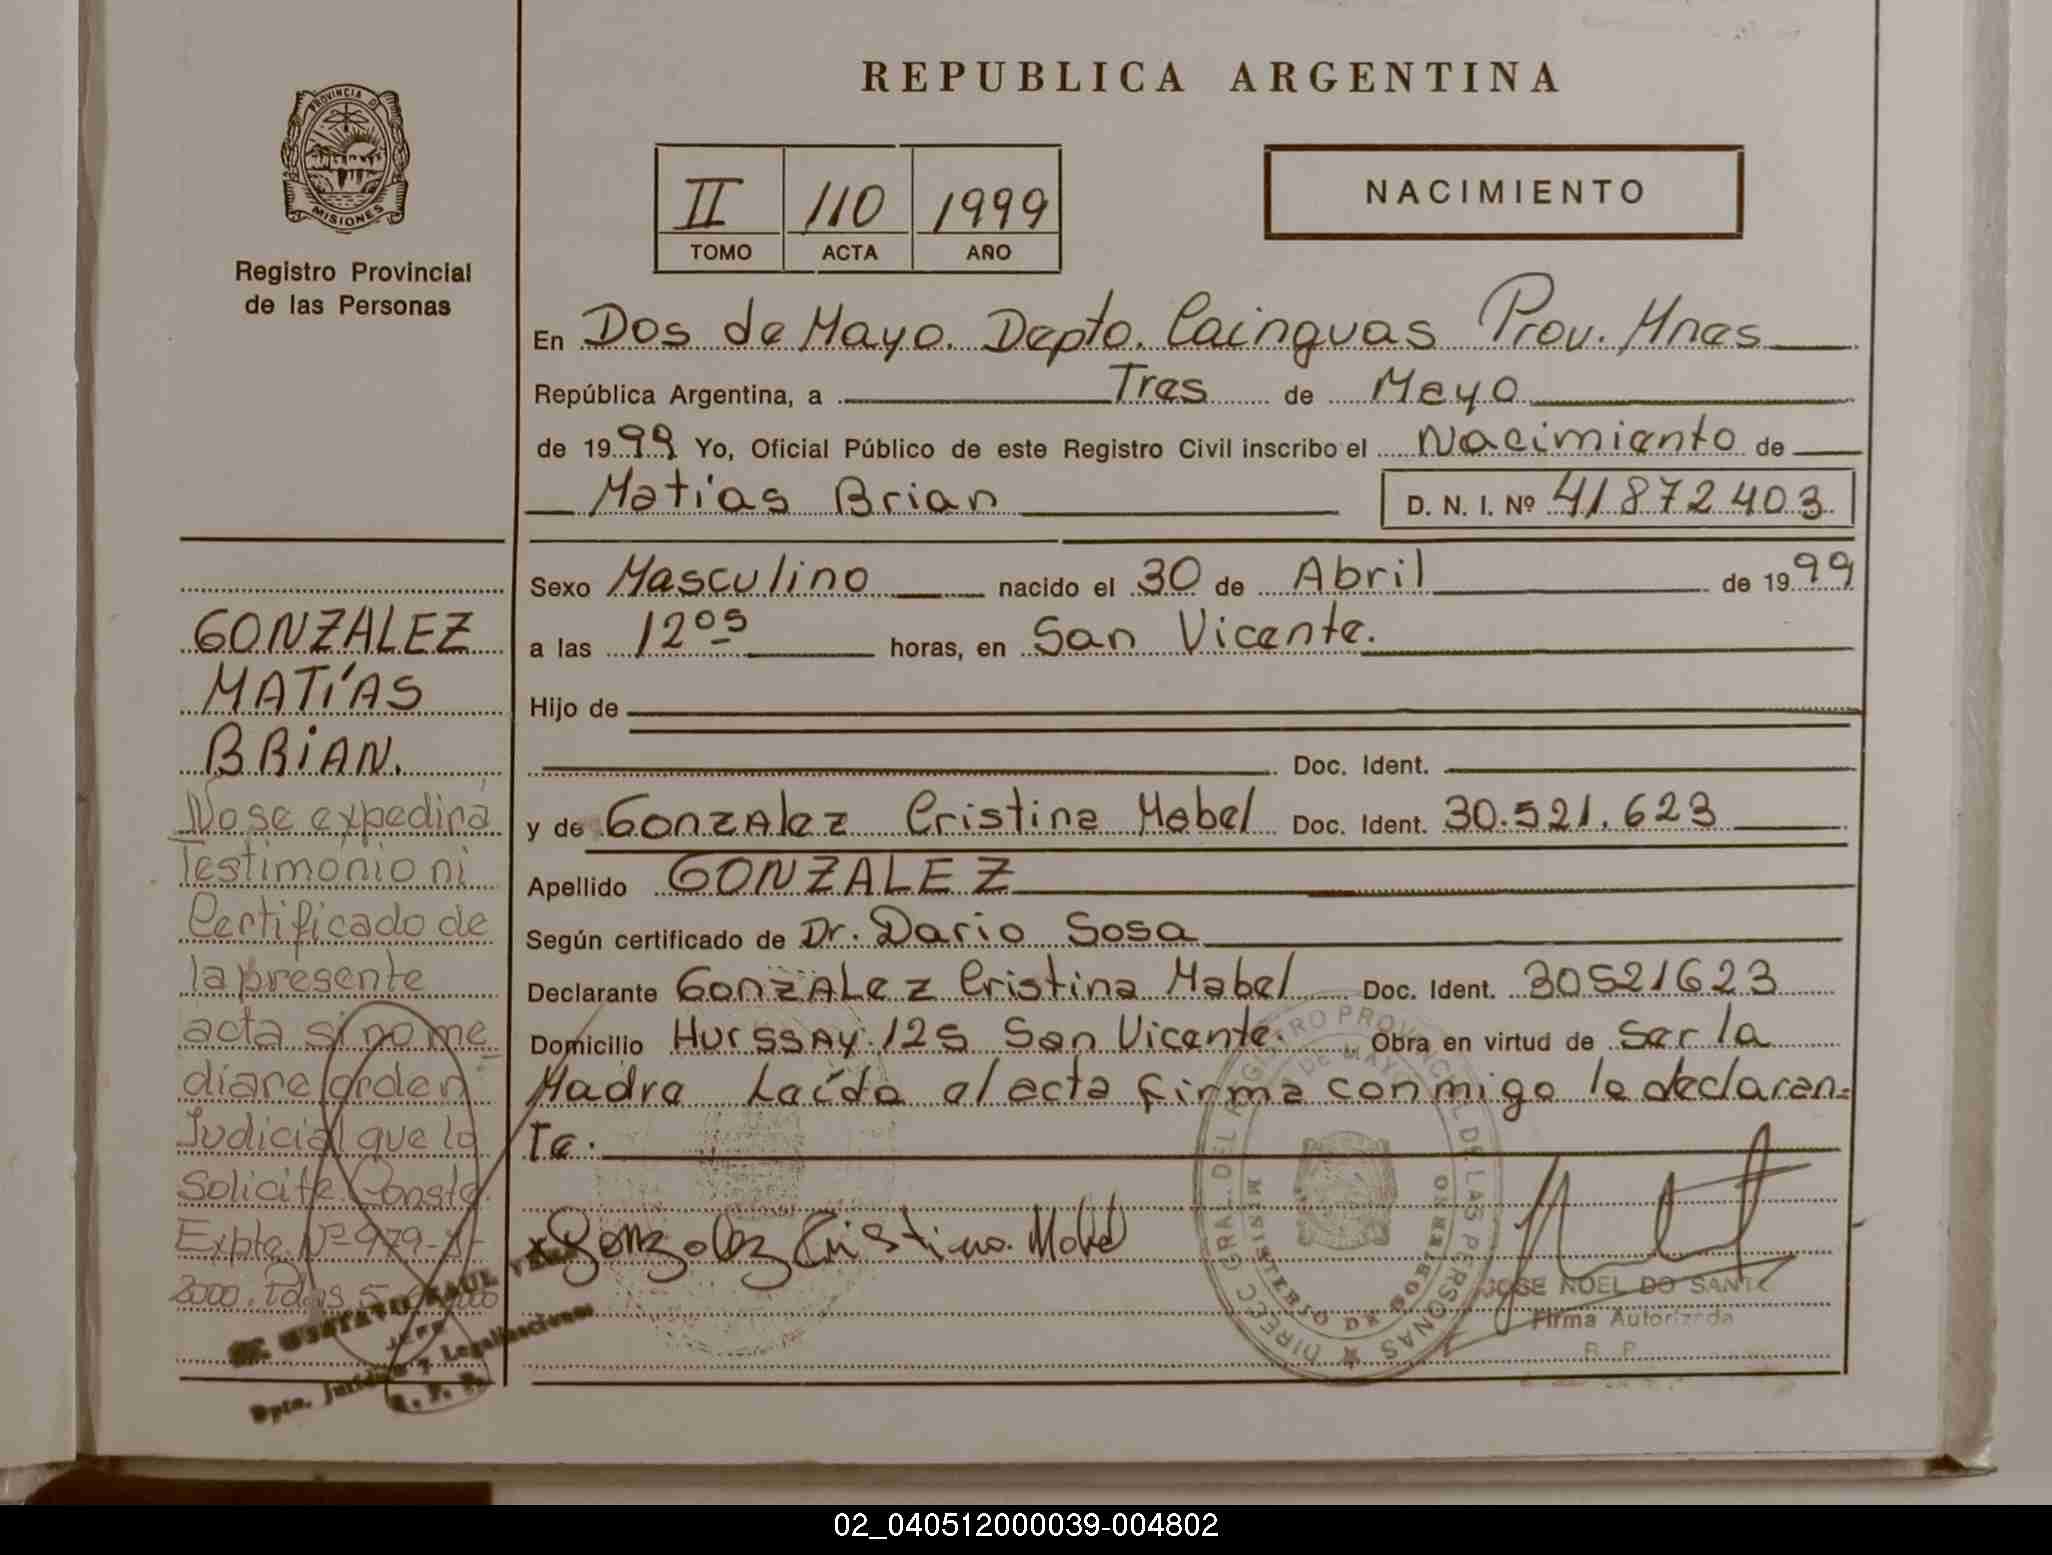 REPUBLICA ARGENTINA
PROVINCIA D
MISIONES
Registro Provincial
de las Personas
II 110 1999
TOMO ACTA AÑO
NACIMIENTO
En Dos de Mayo. Depto. Cainguas Prov. Mnes
República Argentina, a Tres de Mayo
de 1999 Yo, Oficial Público de este Registro Civil inscribo el Nacimiento de
Matías Brian D. N. I. Nº 41872403
Sexo Masculino nacido el 30 de Abril de 1999
a las 12 05 horas, en San Vicente.
Hijo de
Doc. Ident.
y de Gonzalez Cristina Mabel Doc. Ident. 30.521.623
Apellido GONZALEZ
Según certificado de Dr. Dario Sosa
Declarante Gonzalez Cristina Mabel Doc. Ident. 30521623
Domicilio Hurssay 125 San Vicente. Obra en virtud de ser la
Madre Leída el acta firma conmigo la declaran=
te.
Gonzalez Cristina Mabel
JOSE NOEL DO SANT
Firma Autorizada
R. P.
DIRECC GRAL. DEL REGISTRO PROVINCIAL DE LAS PERSONAS
DE MAYO
MINISTERIO DE GOBIERNO
GONZALEZ
MATÍAS
BRIAN.
No se expedirá
Testimonio ni
Certificado de
la presente
acta si no me
diare orden
Judicial que lo
Solicite. Conste.
Expte. Nº 979-
2000. 5
RAUL
JEFE
Dpto. Jurídico y Legalizaciones
R. P. P.
02_040512000039-004802